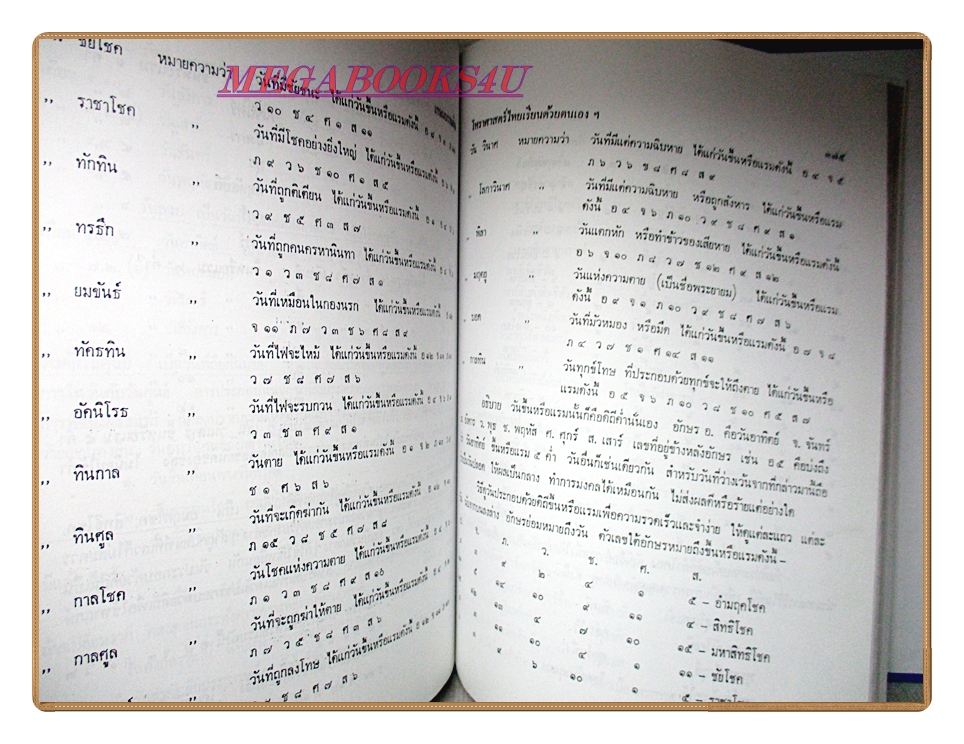 MEGABOOKS4U
,, ชัยโชค หมายความว่า วันที่มีชัยชนะ ได้แก่วันขึ้นหรือแรมดังนี้
ว ๑๐ ช ๔ ศ ๑ ส ๑๑
,, ราชาโชค ,, วันที่มีโชคอย่างยิ่งใหญ่ ได้แก่วันขึ้นหรือแรมดังนี้ อ ๖
ภ ๙ ว ๖ ช ๑๐ ศ ๑ ส ๕
,, ทักทิน ,, วันที่ถูกติเตียน ได้แก่วันขึ้นหรือแรมดังนี้ อ ๑
ว ๙ ช ๕ ศ ๓ ส ๗
,, ทรธึก ,, วันที่ถูกคนครหานินทา ได้แก่วันขึ้นหรือแรมดังนี้
ว ๑ ว ๓ ช ๘ ศ ๗ ส ๑
,, ยมขันธ์ ,, วันที่เหมือนในกองนรก ได้แก่วันขึ้นหรือแรมดังนี้
จ ๑๑ ภ ๗ ว ๓ ช ๖ ศ ๘ ส ๙
,, ทัคธทิน ,, วันที่ไฟจะไหม้ ได้แก่วันขึ้นหรือแรมดังนี้ อ ๑๒
ว ๗ ช ๘ ศ ๗ ส ๖
,, อัคนิโรธ ,, วันที่ไฟจะรบกวน ได้แก่วันขึ้นหรือแรมดังนี้ อ ๔
ว ๓ ช ๓ ศ ๙ ส ๑
,, ทินกาล ,, วันตาย ได้แก่วันขึ้นหรือแรมดังนี้ อ ๑ จ ๒ ภ ๑๐
ช ๑ ศ ๖ ส ๖
,, ทินศูล ,, วันที่จะเกิดฆ่ากัน ได้แก่วันขึ้นหรือแรมดังนี้
ภ ๑๕ ว ๘ ช ๕ ศ ๗ ส ๘
,, กาลโชค ,, วันโชคแห่งความตาย ได้แก่วันขึ้นหรือแรมดังนี้
ภ ๑ ว ๓ ช ๘ ศ ๙ ส ๑๐
,, กาลศูล ,, วันที่จะถูกฆ่าให้ตาย ได้แก่วันขึ้นหรือแรมดังนี้
ภ ๗ ว ๕ ช ๘ ศ ๓ ส ๖
,, วันที่ถูกลงโทษ ได้แก่วันขึ้นหรือแรมดังนี้ อ ๑๒
ช ๘ ศ ๗ ส ๖
โหราศาสตร์ไทยเรียนด้วยตนเอง ฯ ๓๗๕
วัน วินาศ หมายความว่า วันที่มีแต่ความฉิบหาย ได้แก่วันขึ้นหรือแรมดังนี้ อ ๔ จ ๕
ภ ๖ ว ๖ ช ๘ ศ ๘ ส ๙
,, โลกาวินาศ ,, วันที่มีแต่ความฉิบหาย หรือถูกสังหาร ได้แก่วันขึ้นหรือแรม
ดังนี้ อ ๔ จ ๖ ภ ๑๐ ว ๙ ช ๘ ศ ๙ ส ๑
,, พิลา ,, วันแตกหัก หรือทำข้าวของเสียหาย ได้แก่วันขึ้นหรือแรมดังนี้
อ ๖ จ ๑๐ ภ ๘ ว ๗ ช ๑๒ ศ ๙ ส ๑๒
,, มฤตยู ,, วันแห่งความตาย (เป็นชื่อพระยายม) ได้แก่วันขึ้นหรือแรม
ดังนี้ อ ๙ จ ๑ ภ ๑๐ ว ๙ ช ๘ ศ ๗ ส ๖
,, บอด ,, วันที่มัวหมอง หรือมืด ได้แก่วันขึ้นหรือแรมดังนี้ อ ๗ จ ๘
ภ ๔ ว ๗ ช ๑ ศ ๑๔ ส ๑๑
,, กาฬทิน ,, วันทุกข์โทษ ที่ประกอบด้วยทุกข์จะให้ถึงตาย ได้แก่วันขึ้นหรือ
แรมดังนี้ อ ๕ จ ๖ ภ ๑๐ ว ๘ ช ๑๐ ศ ๕ ส ๗
อธิบาย วันขึ้นหรือแรมนั้นก็คือดิถีค่ำนั่นเอง อักษร อ. คือวันอาทิตย์ จ. จันทร์
ภ. อังคาร ว. พุธ ช. พฤหัส ศ. ศุกร์ ส. เสาร์ เลขที่อยู่ข้างหลังอักษร เช่น อ ๕ คือบ่งถึง
วันอาทิตย์ ขึ้นหรือแรม ๕ ค่ำ วันอื่นก็เช่นเดียวกัน สำหรับวันที่ว่างเว้นจากที่กล่าวมานี้ถือ
ให้ผลเป็นกลาง ทำการมงคลได้เหมือนกัน ไม่ส่งผลดีหรือร้ายแต่อย่างใด
วิธีดูวันประกอบด้วยดิถีขึ้นหรือแรมเพื่อความรวดเร็วและจำง่าย ให้ดูแต่ละแถว แต่ละ
อักษรย่อมหมายถึงวัน ตัวเลขใต้อักษรหมายถึงขึ้นหรือแรมดังนี้ –
จ. ภ. ว. ช. ศ. ส.
๙ ๒ ๔ ๑ ๕ – อำมฤคโชค
๑๔ ๑๐ ๙ ๑๑ ๔ – สิทธิโชค
๑๓ ๔ ๗ ๑๐ ๑๕ – มหาสิทธิโชค
๑๑ ๑๐ ๔ ๑ ๑๑ – ชัยโชค
๙ ๖ ๑๐ ๑ ๕ – ราชาโชค